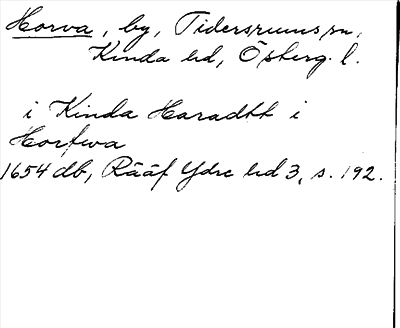 Horva, by, Tidersrums sn,
Kinda hd, Östergl.
i Kinda Haradtt i
Horfwa
1654 db, Rääf Ydre hd 3, s. 192.